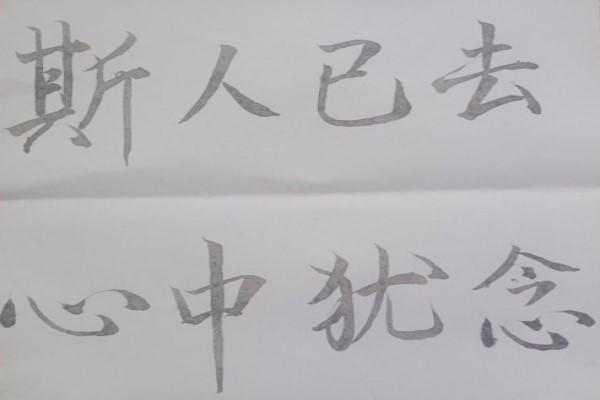 斯人已去
心中犹念